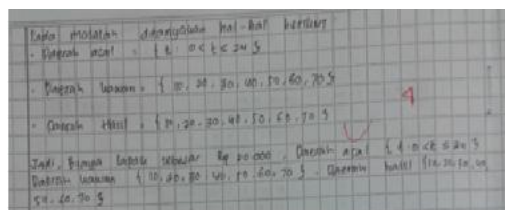 Pada masalah ditanyakan hal-hal berikut
- Daerah asal = { t : 0 < t ≤ 24 }
- Daerah lawan = { 10, 20, 30, 40, 50, 60, 70 }
- Daerah Hasil = { 10, 20, 30, 40, 50, 60, 70 }
4
Jadi, sebesar Rp 20.000. Daerah asal { t : 0 < t ≤ 24 }
Daerah lawan { 10, 20, 30, 40, 50, 60, 70 }. Daerah hasil { 10, 20, 30, 40,
50, 60, 70 }